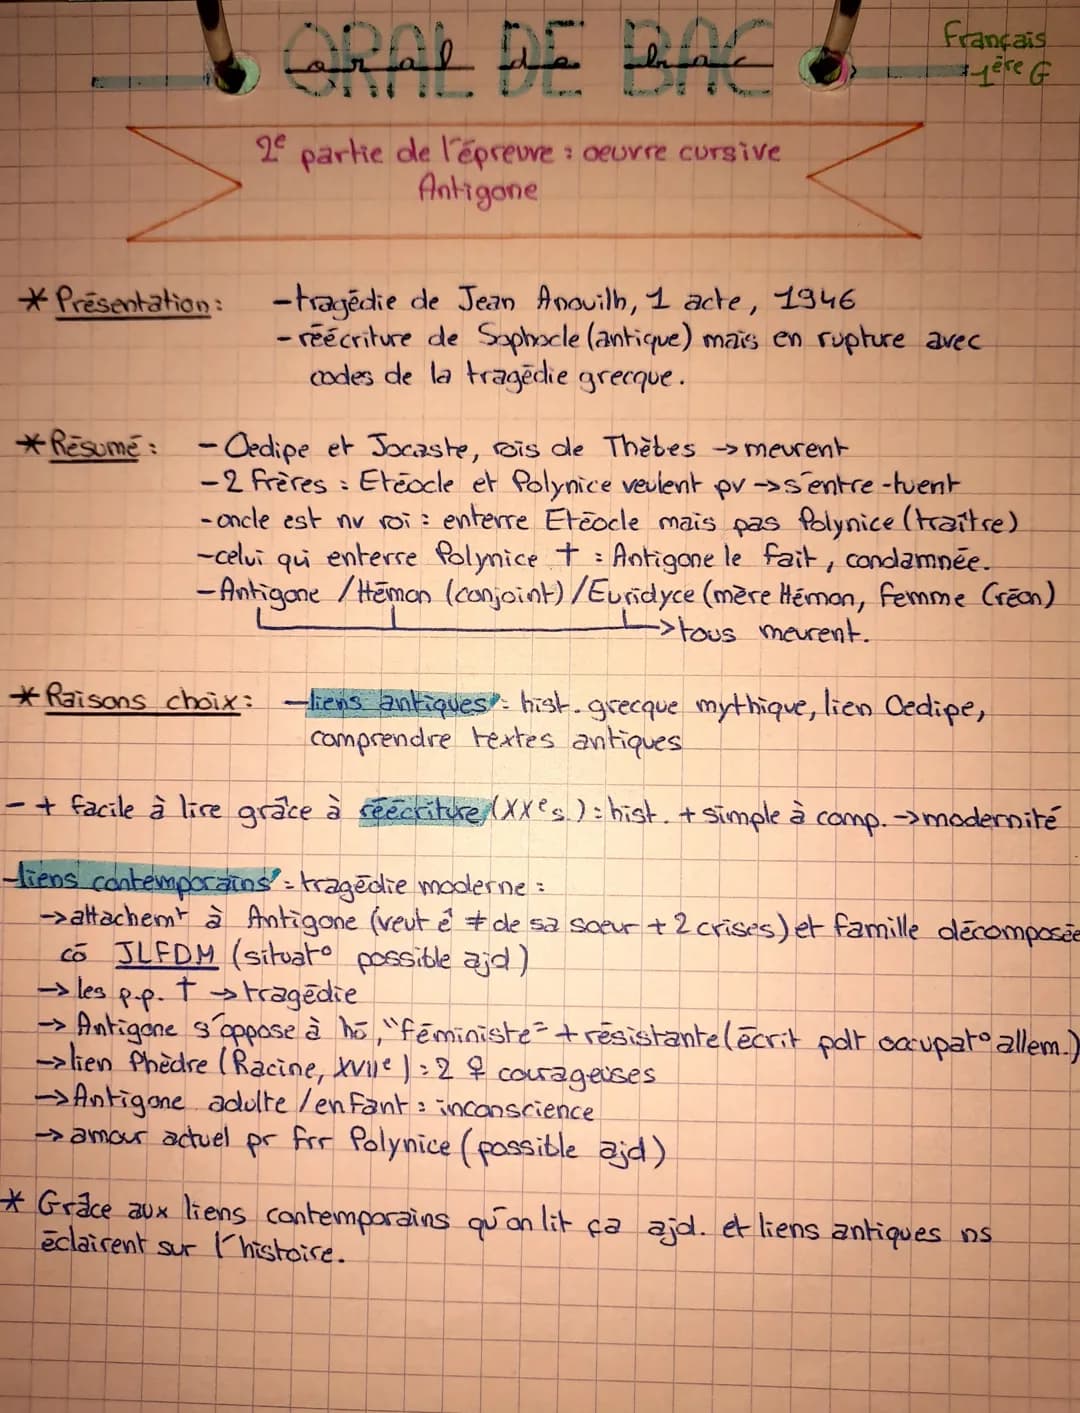 ORAL DE BAC
oral de bac
Français
1ère G
2e partie de l'épreuve : oeuvre cursive
Antigone
* Présentation : - tragédie de Jean Anouilh, 1 acte, 1946
- réécriture de Sophocle (antique) mais en rupture avec
codes de la tragédie grecque.
* Résumé : - Oedipe et Jocaste, rois de Thèbes -> meurent
- 2 frères : Etéocle et Polynice veulent pv -> s'entre-tuent
- oncle est nv roi : enterre Etéocle mais pas Polynice (traître)
- celui qui enterre Polynice † : Antigone le fait, condamnée.
- Antigone / Hémon (conjoint) / Euridyce (mère Hémon, femme Créon)
-> tous meurent.
* Raisons choix : - liens antiques : hist. grecque mythique, lien Oedipe,
comprendre textes antiques
- + facile à lire grâce à réécriture (XXe s.) : hist. + simple à comp. -> modernité
- liens contemporains : tragédie moderne :
-> attachemt à Antigone (veut ê ≠ de sa soeur + 2 crises) et famille décomposée
cō JLFDM (situat° possible ajd)
-> les p.p. † -> tragédie
-> Antigone s'oppose à hō, "féministe" + résistante (écrit pdt occupat° allem.)
-> lien Phèdre (Racine, XVIIe) : 2 ♀ courageuses
-> Antigone adulte / enfant : inconscience
-> amour actuel pr frr Polynice (possible ajd)
* Grâce aux liens contemporains qu'on lit ça ajd. et liens antiques ns
éclairent sur l'histoire.